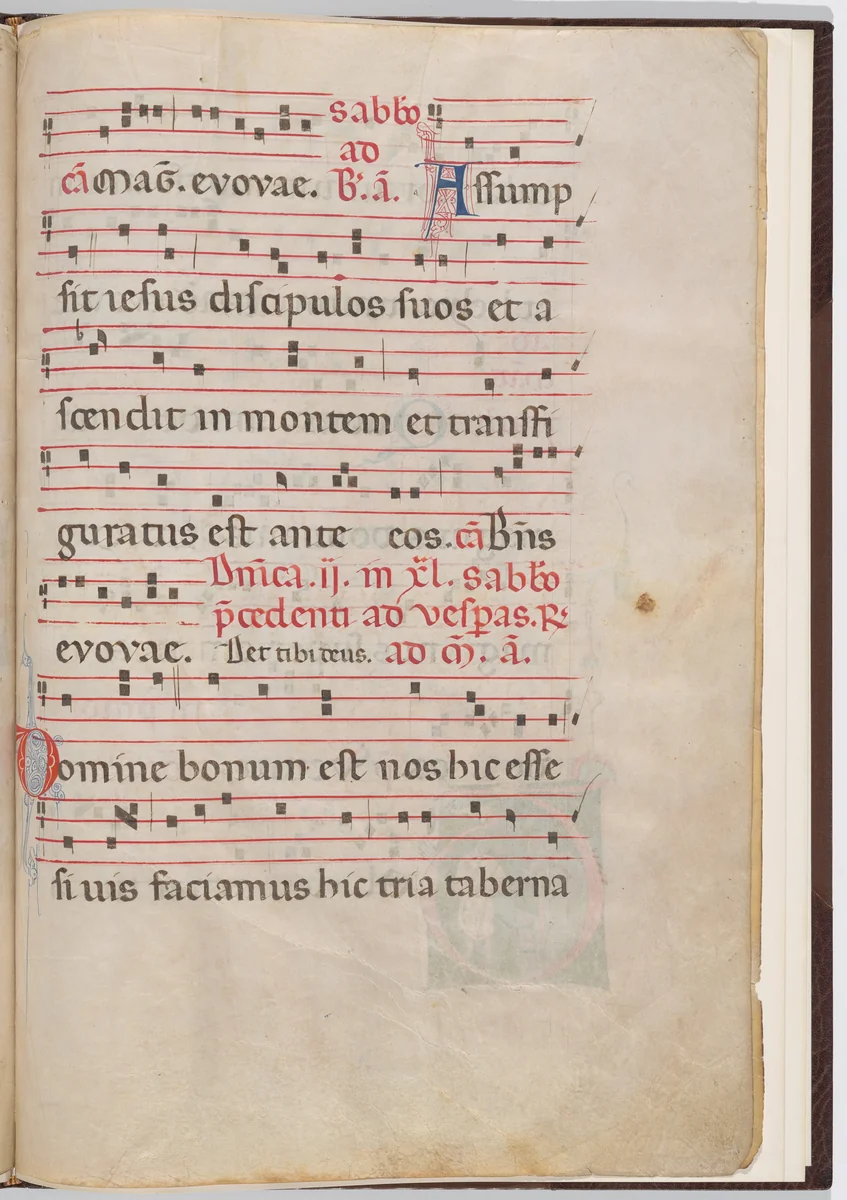 sabbo
ad
cā maḡ. evovae. B. ā. Assump
sit iesus discipulos suos et a
scendit in montem et transfi
guratus est ante eos. cā Bn̄s
Dn̄ica .ij. in xl. sabbo
p̄cedenti ad vesperas. R
evovae. Det tibi deus. ad m̄. ā.
Domine bonum est nos hic esse
si uis faciamus hic tria taberna